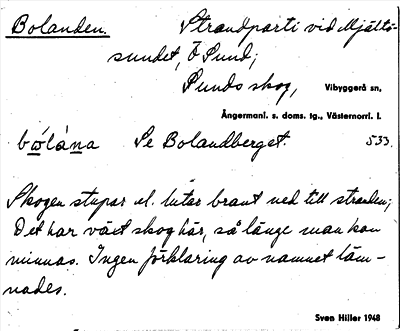 Bolanden. Strandparti vid Mjältö-
sundet, Ö Sund;
Sunds skog, Vibyggerå sn,
Ångermanl. s. doms. tg., Västernorrl. l.
Se Bolandberget. 533.
Skogen stupar el. lutar brant ned till stranden;
Det har växt skog här, så länge man kan
minnas. Ingen förklaring av namnet läm-
nades.
Sven Hiller 1948